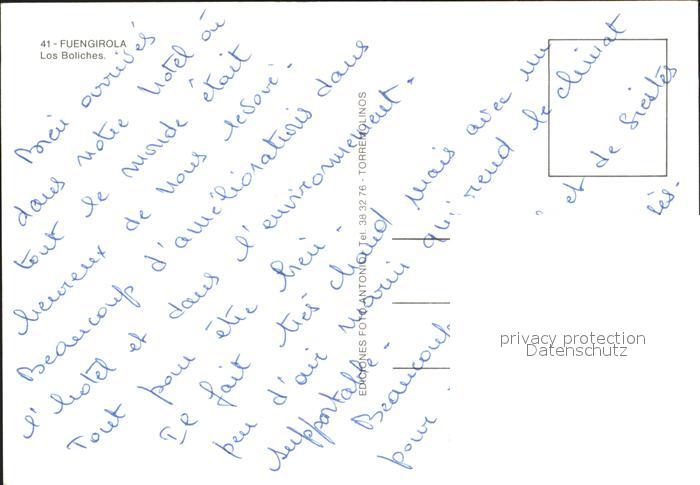 41 - FUENGIROLA
Los Boliches.
Bien arrivés
dans notre hotel où
tout le monde était
heureux de nous revoir.
Beaucoup d'améliorations dans
l'hotel et dans l'environnement.
Tout pour être bien.
Il fait très chaud mais avec un
peu d'air marin qui rend le climat
supportable.
Beaucoup et de siestes
pour
EDICIONES FOTO ANTONIO - Tel. 38 32 76 - TORREMOLINOS
privacy protection
Datenschutz